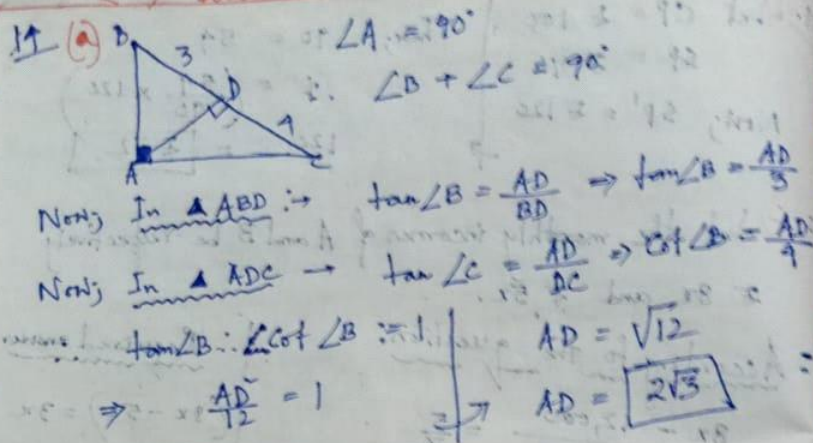 14 (a) B 3 D 4 A C ∠A = 90°
∴ ∠B + ∠C = 90°
Now; In ▲ ABD :→ tan∠B = AD/BD ⇒ tan∠B = AD/3
Now; In ▲ ADC → tan ∠C = AD/DC ⇒ cot ∠B = AD/4
tan∠B · cot ∠B = 1
⇒ AD²/12 = 1
AD = √12
⇒ AD = 2√3